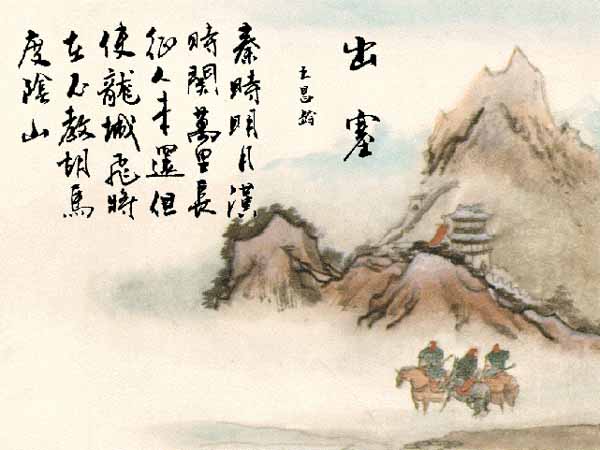 出塞
王昌龄
秦時明月漢
時關萬里長
征人未還但
使龍城飛將
在不教胡馬
度陰山